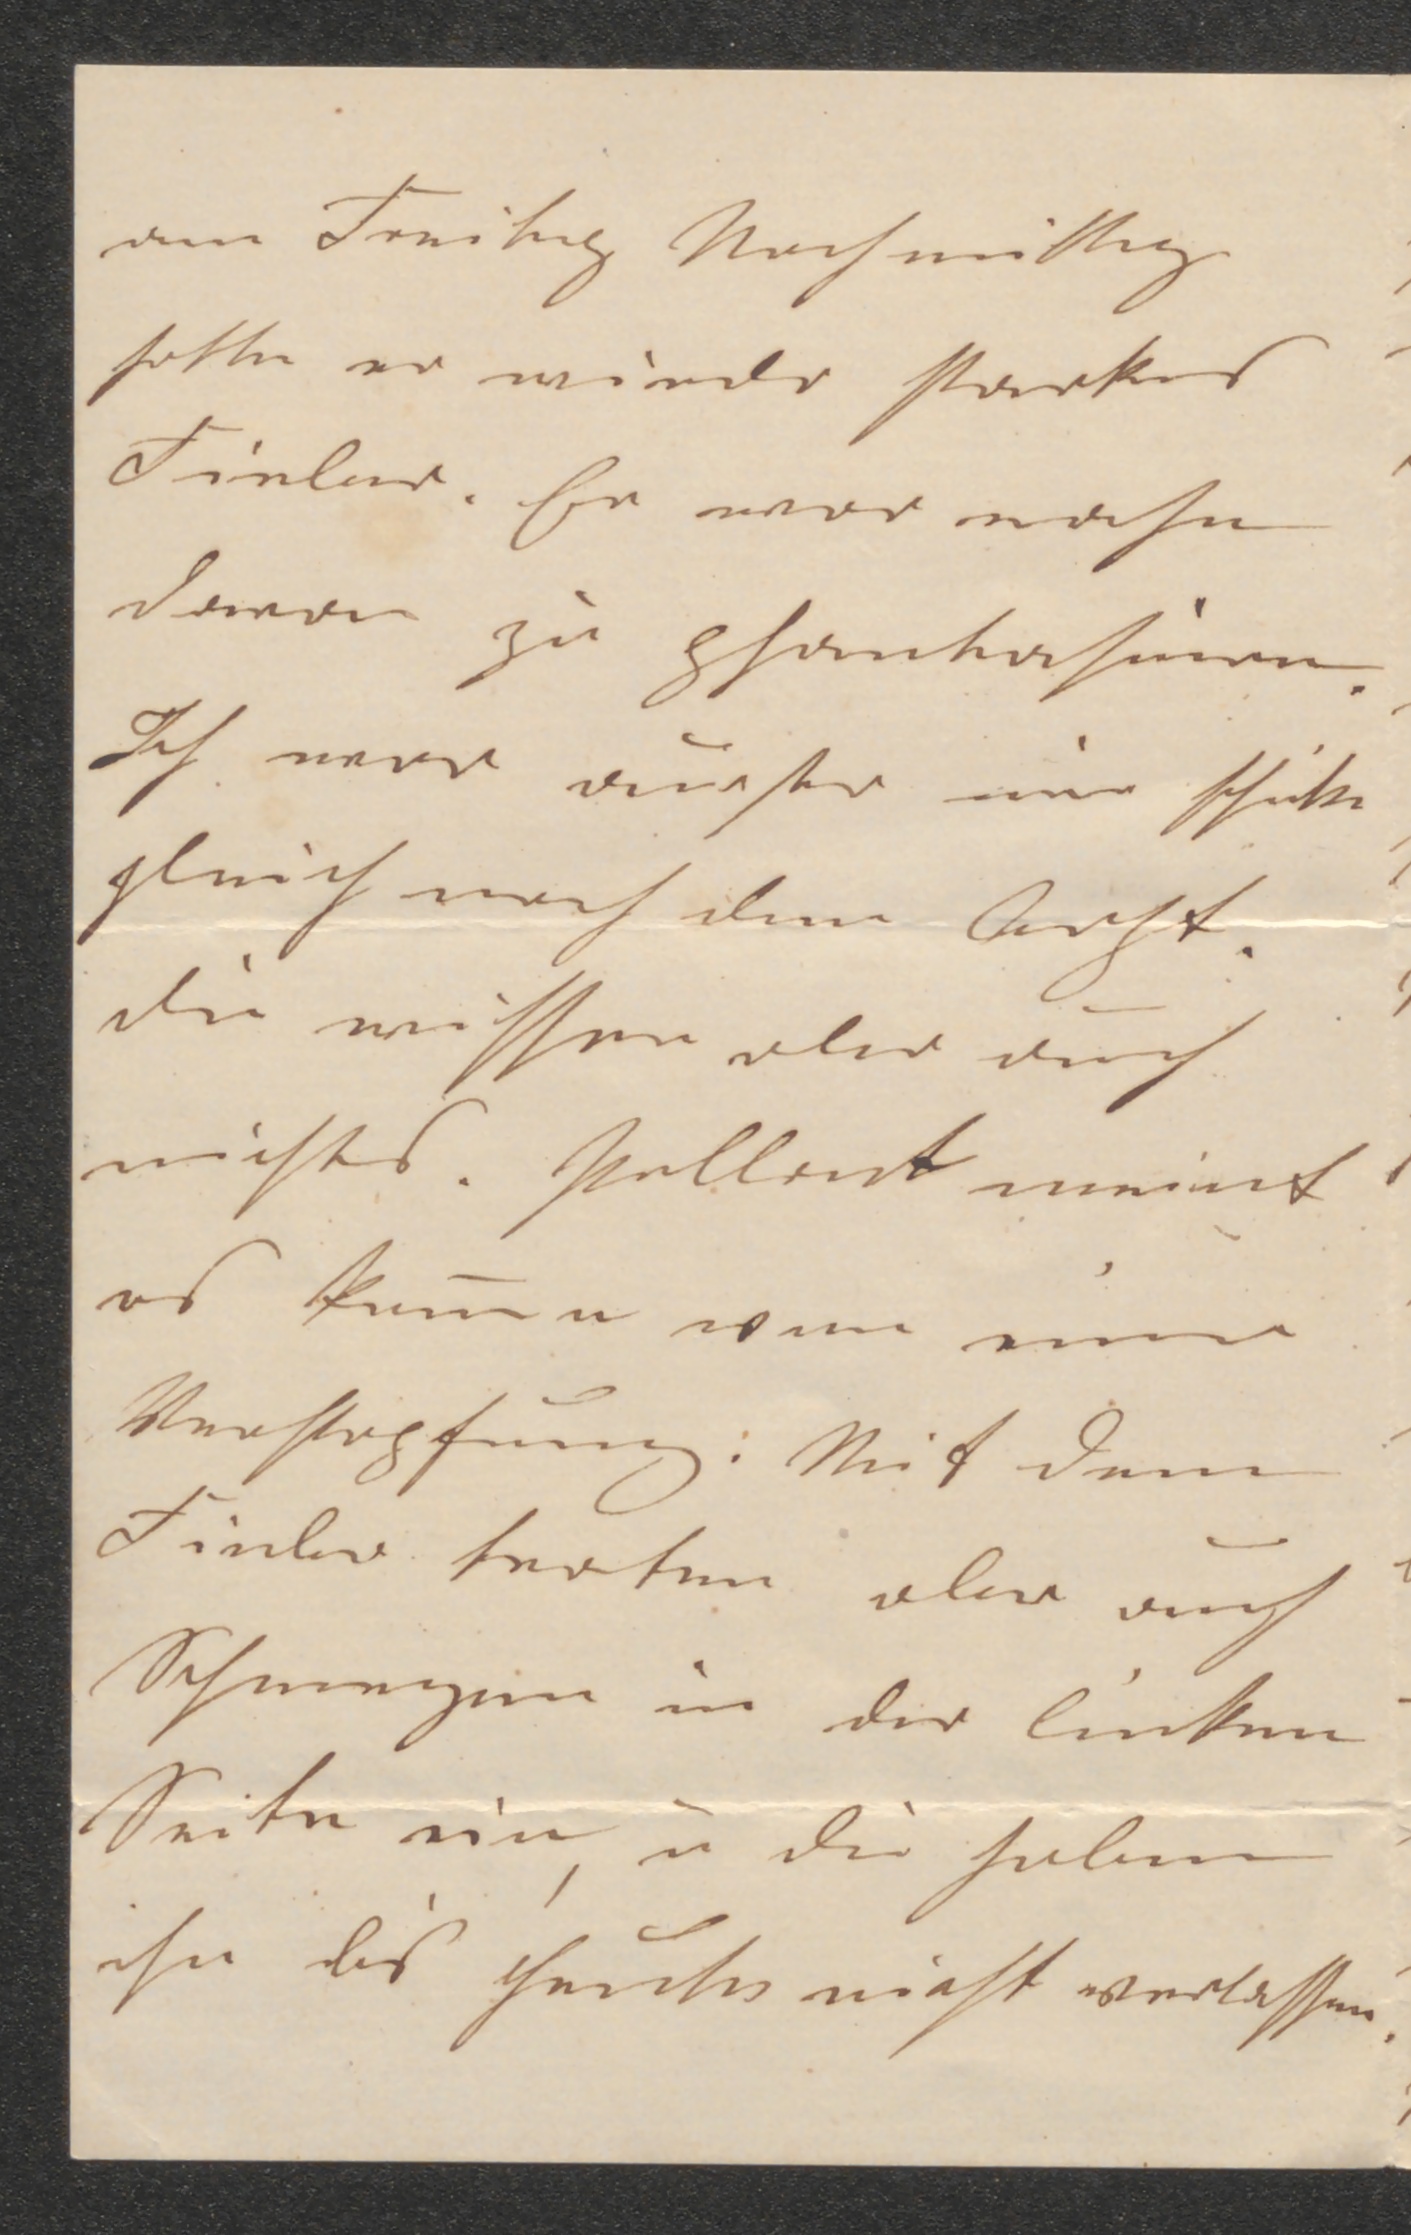 am Freitag Nachmittag
hatte er wieder starkes
Fieber. Er war nahe
daran zu phantasieren.
Ich war außer mir schickte
gleich nach dem Arzt.
die wissen aber auch
nichts. meint
es kom̄e von einer
Verstopfung: Mit dem
Fieber traten aber auch
Schmerzen in der linken
Seite ein, u die haben
ihn bis heute nicht verlassen.